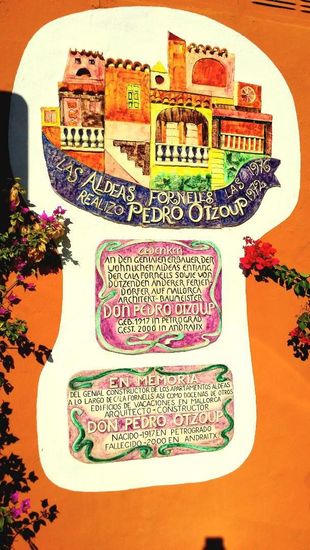 LAS ALDEAS FORNELLS LAS 1976
REALIZO PEDRO OTZOUP
GEDENKEN
AN DEN GENIALEN ERBAUER DER
WOHNLICHEN ALDEAS ENTLANG
DER CALA FORNELLS SOWIE VON
DUTZENDEN ANDERER FERIEN
DÖRFER AUF MALLORCA
ARCHITEKT-BAUMEISTER
DON PEDRO OTZOUP
GEB. 1917 IN PETROGRAD
GEST. 2000 IN ANDRAITX
EN MEMORIA
DEL GENIAL CONSTRUCTOR DE LOS APARTAMENTOS ALDEAS
A LO LARGO DE C/LA FORNELLS ASI COMO DOCENAS DE OTROS
EDIFICIOS DE VACACIONES EN MALLORCA
ARQUITECTO-CONSTRUCTOR
DON PEDRO OTZOUP
NACIDO-1917 EN PETROGRADO
FALLECIDO-2000 EN ANDRAITX